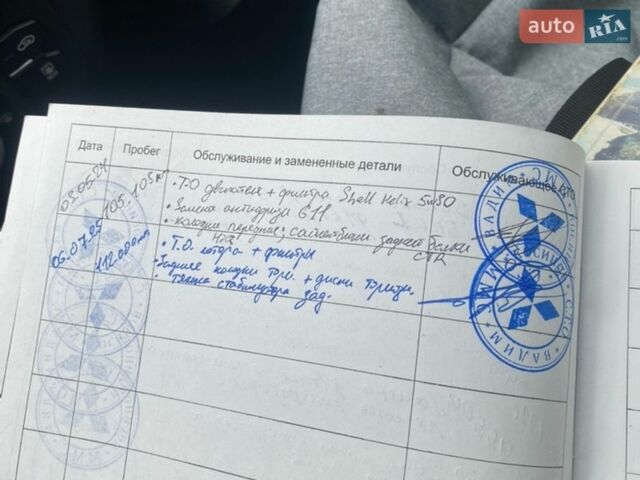 auto RIA .com
Дата Пробег Обслуживание и замененные детали Обслуживающее СТО
03.05.24 105.103 км • Т.О двигателя + фильтра Shell Helix 5w30
• Замена антифриза G11
• колодки передние; сайлентблоки задней балки
CTR
06.07.25 112.000 • Т.О. мотора + фильтры
• Задние колодки торм. + диски
тяга стабилизатора зад.
ВАДИМ
ММС
ВАДИМ
ММС